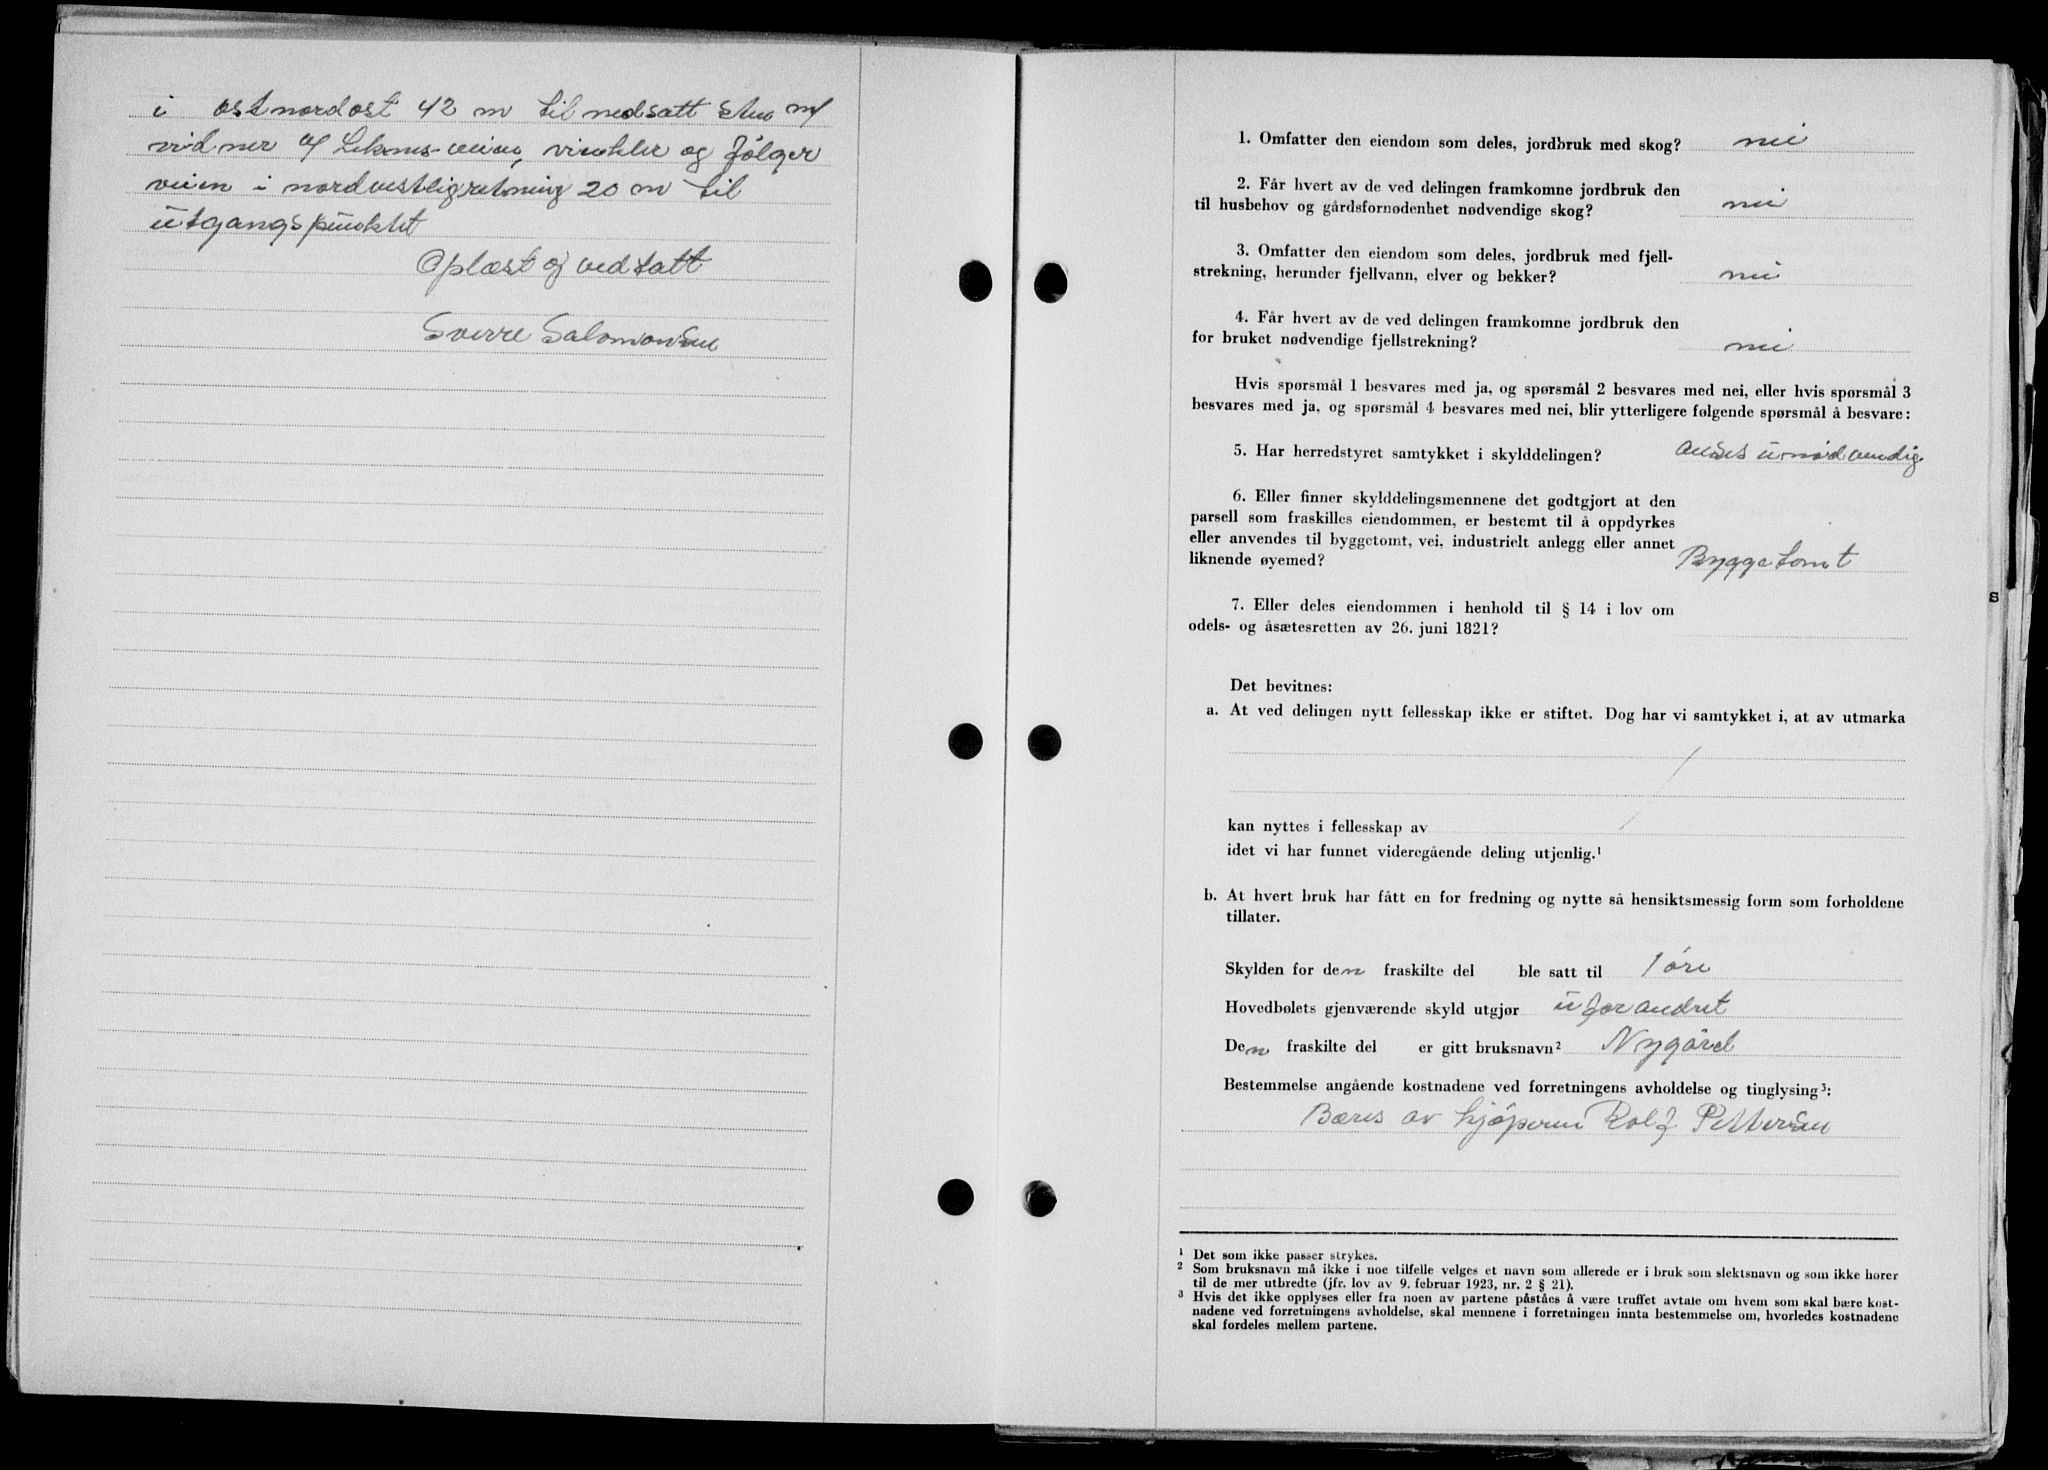 i ostnordost 42 m til nedsatt sten m/
vidner af Leknes-veien, vinkler og følger
veien i nordvestlig retning 20 m til
utgangspunktet
Oplæst og vedtatt
Sverre Salomonsen
1. Omfatter den eiendom som deles, jordbruk med skog? nei
2. Får hvert av de ved delingen framkomne jordbruk den
til husbehov og gårdsfornødenhet nødvendige skog? nei
3. Omfatter den eiendom som deles, jordbruk med fjell-
strekning, herunder fjellvann, elver og bekker? nei
4. Får hvert av de ved delingen framkomne jordbruk den
for bruket nødvendige fjellstrekning? nei
Hvis spørsmål 1 besvares med ja, og spørsmål 2 besvares med nei, eller hvis spørsmål 3
besvares med ja, og spørsmål 4 besvares med nei, blir ytterligere følgende spørsmål å besvare:
5. Har herredstyret samtykket i skylddelingen? anses unødvendig
6. Eller finner skylddelingsmennene det godtgjort at den
parsell som fraskilles eiendommen, er bestemt til å oppdyrkes
eller anvendes til byggetomt, vei, industrielt anlegg eller annet
liknende øyemed? Byggetomt
7. Eller deles eiendommen i henhold til § 14 i lov om
odels- og åsætesretten av 26. juni 1821?
Det bevitnes:
a. At ved delingen nytt fellesskap ikke er stiftet. Dog har vi samtykket i, at av utmarka
kan nyttes i fellesskap av
idet vi har funnet videregående deling utjenlig.¹
b. At hvert bruk har fått en for fredning og nytte så hensiktsmessig form som forholdene
tillater.
Skylden for den fraskilte del ble satt til 1 øre
Hovedbølets gjenværende skyld utgjør uforandret
Den fraskilte del er gitt bruksnavn² Nygård
Bestemmelse angående kostnadene ved forretningens avholdelse og tinglysing³:
Bæres av kjøperen Rolf Pettersen
¹ Det som ikke passer strykes.
² Som bruksnavn må ikke i noe tilfelle velges et navn som allerede er i bruk som slektsnavn og som ikke hører
til de mer utbredte (jfr. lov av 9. februar 1923, nr. 2 § 21).
³ Hvis det ikke opplyses eller fra noen av partene påståes å være truffet avtale om hvem som skal bære kost-
nadene ved forretningens avholdelse, skal mennene i forretningen innta bestemmelse om, hvorledes kostnadene
skal fordeles mellem partene.
S